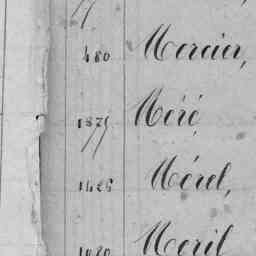 "
480 Mercier,
1875 Méré,
"
1426 Mérel,
1020 Meril